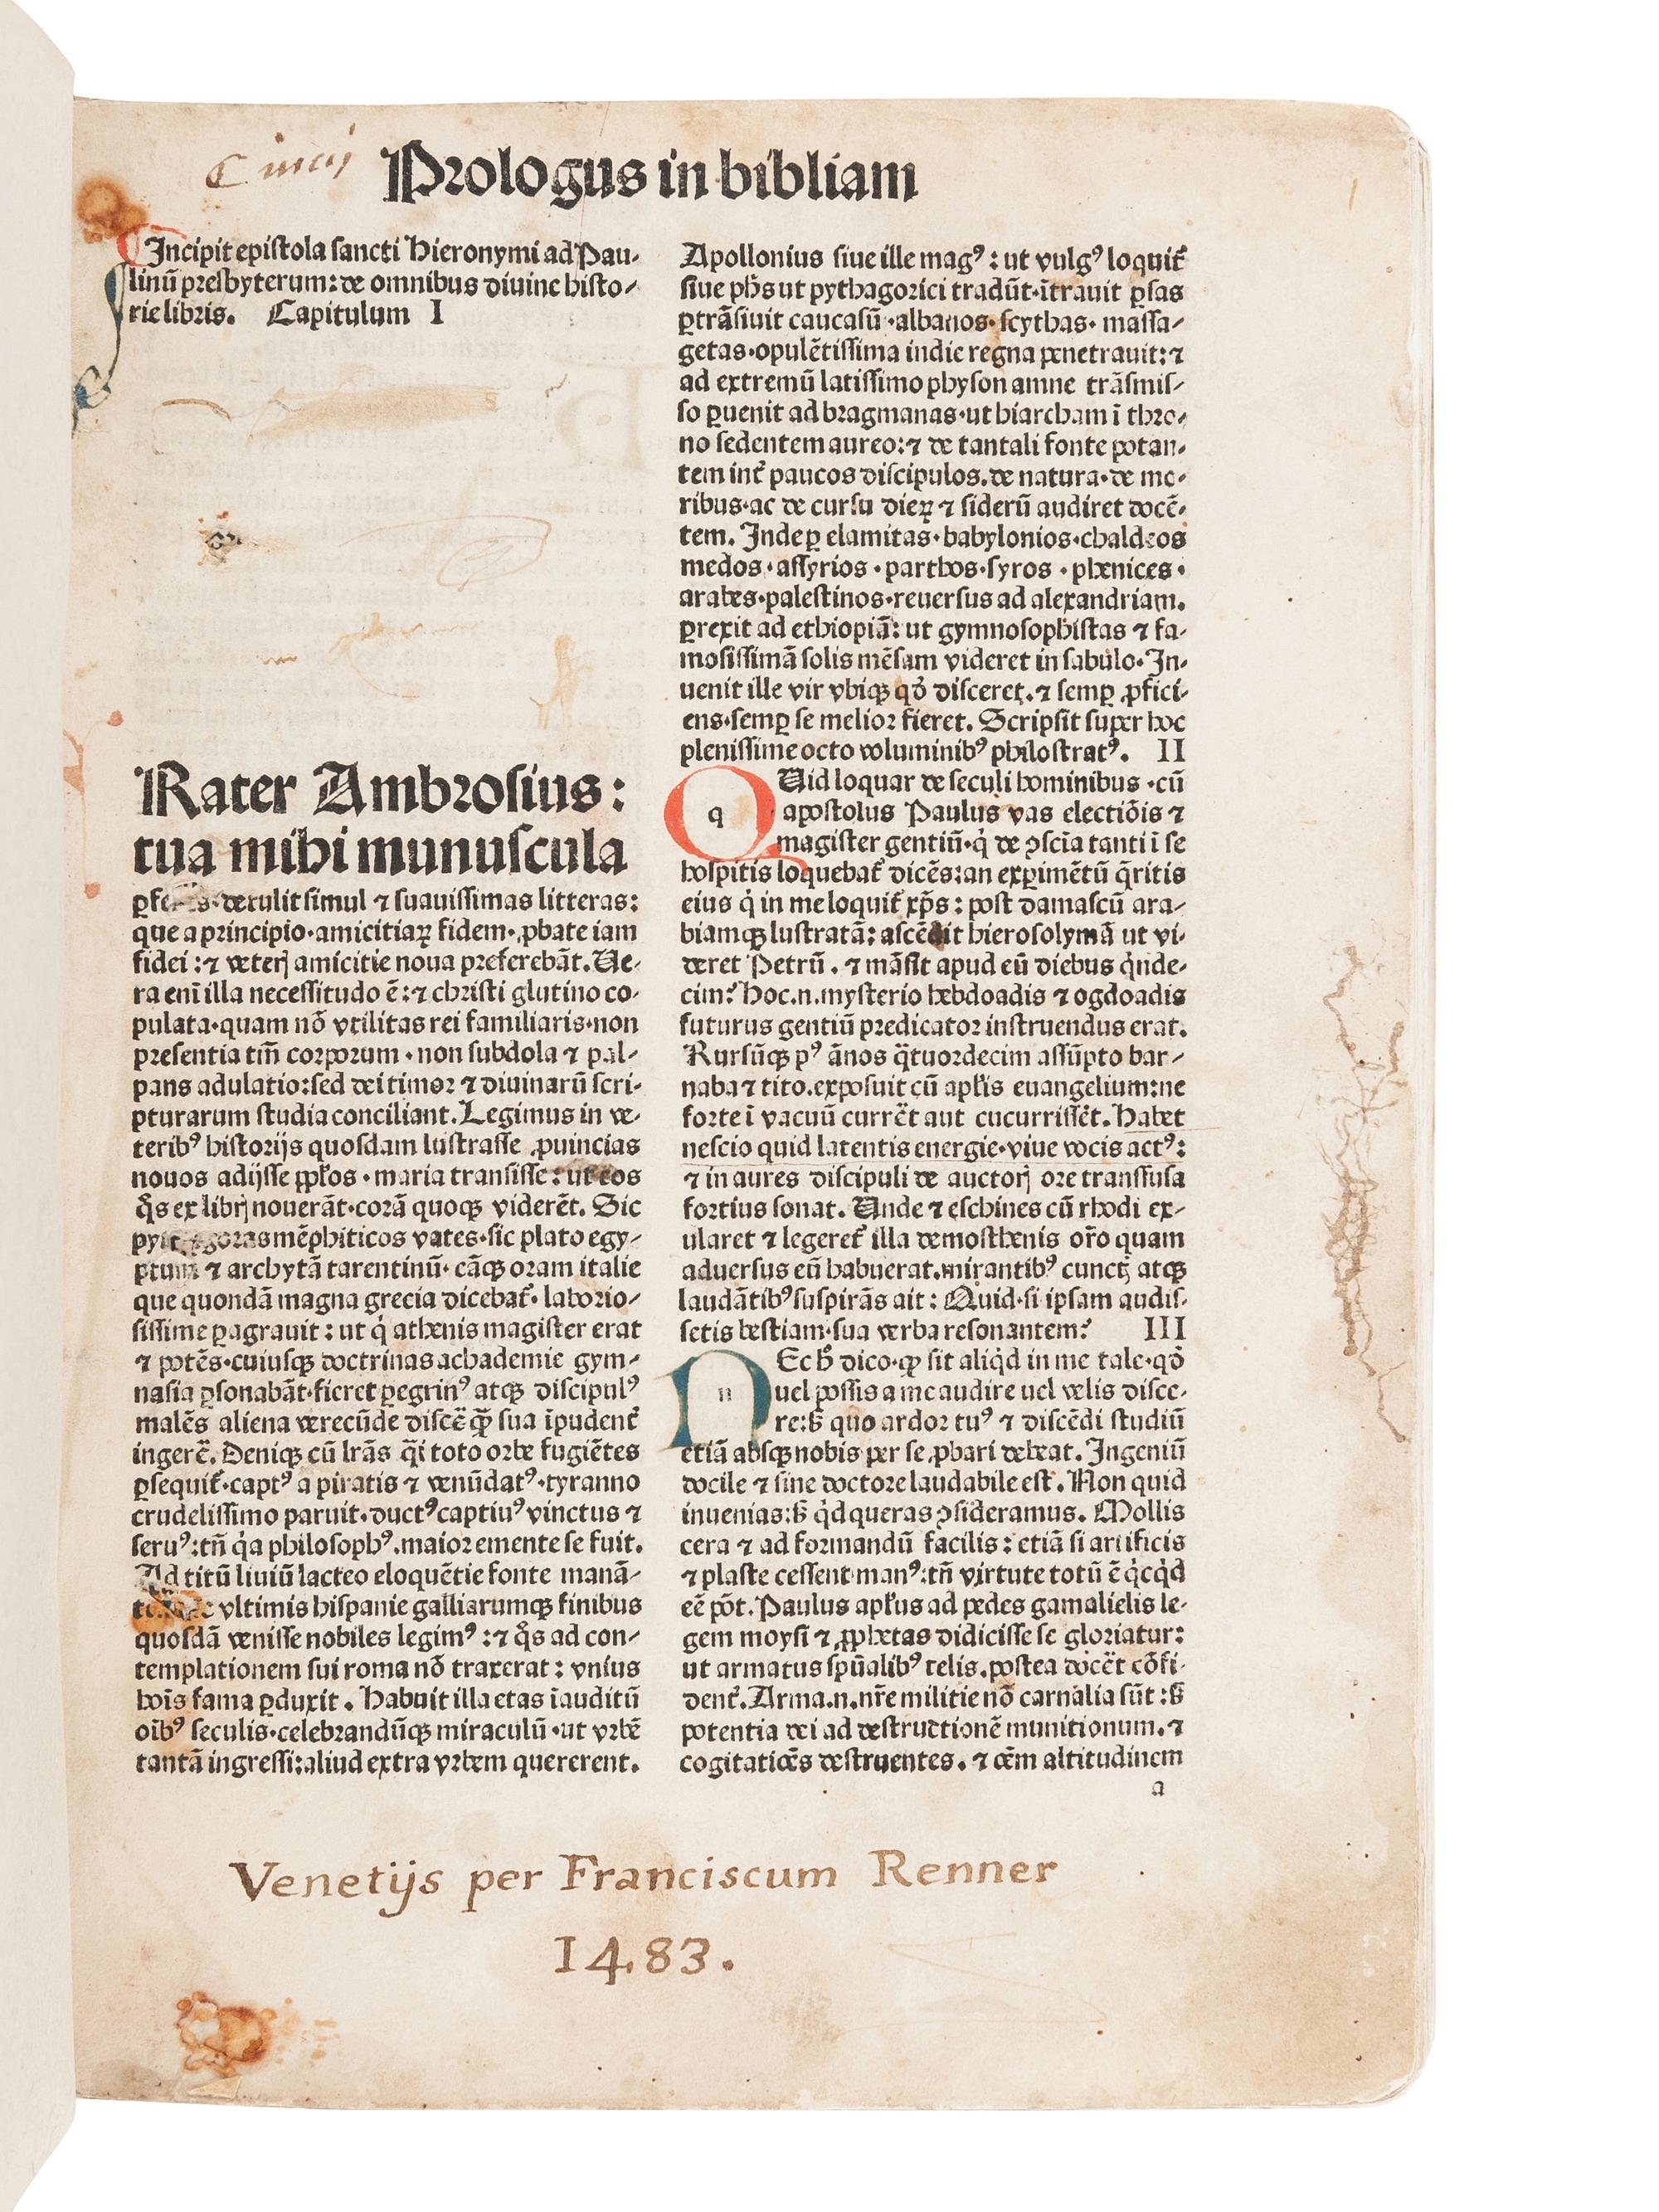 Prologus in bibliam
Incipit epistola sancti Hieronymi ad Pau-
linū presbyterum: de omnibus diuine histo-
rie libris. Capitulum I
Rater Ambrosius:
tua mihi munuscula
detulit simul ⁊ suauissimas litteras:
que a principio·amicitiaꝝ fidem·ꝓbate iam
fidei:⁊ veterꝭ amicitie noua preferebāt. Ue-
ra eni illa necessitudo ē:⁊ christi glutino co-
pulata·quam nō vtilitas rei familiaris·non
presentia tm̄ corporum·non subdola ⁊ pal-
pans adulatio:sed dei timor ⁊ diuinarū scri-
pturarum studia conciliant. Legimus in ve-
teribꝰ historijs quosdam lustrasse ꝓuincias
nouos adijsse ppl'os·maria transisse: ut eos
q̄s ex librꝭ nouerāt·corā quoqꝫ viderēt. Sic
mēphiticos vates·sic plato egy-
ptum ⁊ archytā tarentinū·cāqꝫ oram italie
que quondā magna grecia dicebat᷒·laborio-
sissime ꝑagrauit: ut q̇ athenis magister erat
⁊ potēs·cuiusqꝫ doctrinas achademie gym-
nasia ꝑsonabāt·fieret ꝑegrinꝰ atqꝫ discipulꝰ
malēs aliena verecūde discē q̄ꝫ sua īpudent᷒
ingerē. Deniqꝫ cū lrās q̄si toto orbe fugiētes
ꝑsequit᷒·captꝰ a piratis ⁊ venūdatꝰ·tyranno
crudelissimo paruit·ductꝰ captiuꝰ vinctus ⁊
seruꝰ:tn̄ q̇a philosophꝰ·maior emente se fuit.
Ad titū liuiū lacteo eloquētie fonte manā-
vltimis hispanie galliarumqꝫ finibus
quosdā venisse nobiles legimꝰ:⁊ q̄s ad con-
templationem sui roma nō traxerat: vnius
hoīs fama ꝑduxit. Habuit illa etas īauditū
oībꝰ seculis·celebrandūqꝫ miraculū·ut vrbē
tantā ingressi:aliud extra vrbem quererent.
Apollonius siue ille magꝰ: ut vulgꝰ loquit᷒
siue ph̄s ut pythagorici tradūt·ītrauit ꝑsas
ꝑtrāsiuit caucasū·albanos·scythas·massa-
getas·opulētissima indie regna penetrauit:⁊
ad extremū latissimo physon amne trāsmis-
so ꝑuenit ad bragmanas·ut hiarcham ī thro-
no sedentem aureo:⁊ de tantali fonte potan-
tem int᷒ paucos discipulos.de natura·de mo-
ribus·ac de cursu dieꝝ ⁊ siderū audiret docē-
tem. Inde ꝑ elamitas·babylonios·chaldeos
medos·assyrios·parthos·syros·phenices·
arabes·palestinos·reuersus ad alexandriam.
ꝑrexit ad ethiopiā: ut gymnosophistas ⁊ fa-
mosissimā solis mēsam videret in sabulo·In-
uenit ille vir vbiqꝫ qō disceret.⁊ semꝑ ꝓfici-
ens·semꝑ se melior fieret. Scripsit super hoc
plenissime octo voluminibꝰ philostratꝰ. II
q
Uid loquar de seculi hominibus·cū
apostolus Paulus vas electiōis ⁊
magister gentiū·q̇ de ꝯscīa tanti ī se
hospitis loquebat᷒ dicēs:an exꝑimētū q̄ritis
eius q̇ in me loquit᷒ xp̄s: post damascū ara-
biamqꝫ lustratā: ascēdit hierosolymā ut vi-
deret Petrū.⁊ māsit apud eū diebus q̇nde-
cim? Hoc.n.mysterio hebdoadis ⁊ ogdoadis
futurus gentiū predicator instruendus erat.
Rursūqꝫ pꝰ ānos q̄tuordecim assūpto bar-
naba ⁊ tito.exposuit cū apl'is euangelium:ne
forte ī vacuū currēt aut cucurrissēt. Habet
nescio quid latentis energie·viue vocis actꝰ:
⁊ in aures discipuli de auctorꝭ ore transfusa
fortius sonat. Unde ⁊ eschines cū rhodi ex-
ularet ⁊ legeret᷒ illa demosthenis or̄o quam
aduersus eū habuerat.mirantibꝰ cunctꝭ atqꝫ
laudātibꝰ suspirās ait: Quid·si ipsam audis-
setis bestiam·sua verba resonantem? III
n
Ec h̄ dico·qꝙ sit aliq̇d in me tale·qō
uel possis a me audire uel velis disce-
re:s̄ quo ardor tuꝰ ⁊ discēdi studiū
etiā absqꝫ nobis per se ꝓbari debeat. Ingeniū
docile ⁊ sine doctore laudabile est. Non quid
inuenias:s̄ q̇d queras ꝯsideramus. Mollis
cera ⁊ ad formandū facilis: etiā si artificis
⁊ plaste cessent manꝰ:tn̄ virtute totū ē q̇cq̇d
eē pōt. Paulus apl'us ad pedes gamalielis le-
gem moysi ⁊ ꝓphetas didicisse se gloriatur:
ut armatus spūalibꝰ telis.postea docēt cōfi-
dent᷒. Arma.n.nr̄e militie nō carnalia sūt:s̄
potentia dei ad destructionē munitionum.⁊
cogitatiōes destruentes.⁊ oēm altitudinem
a
Venetijs per Franciscum Renner
1483.